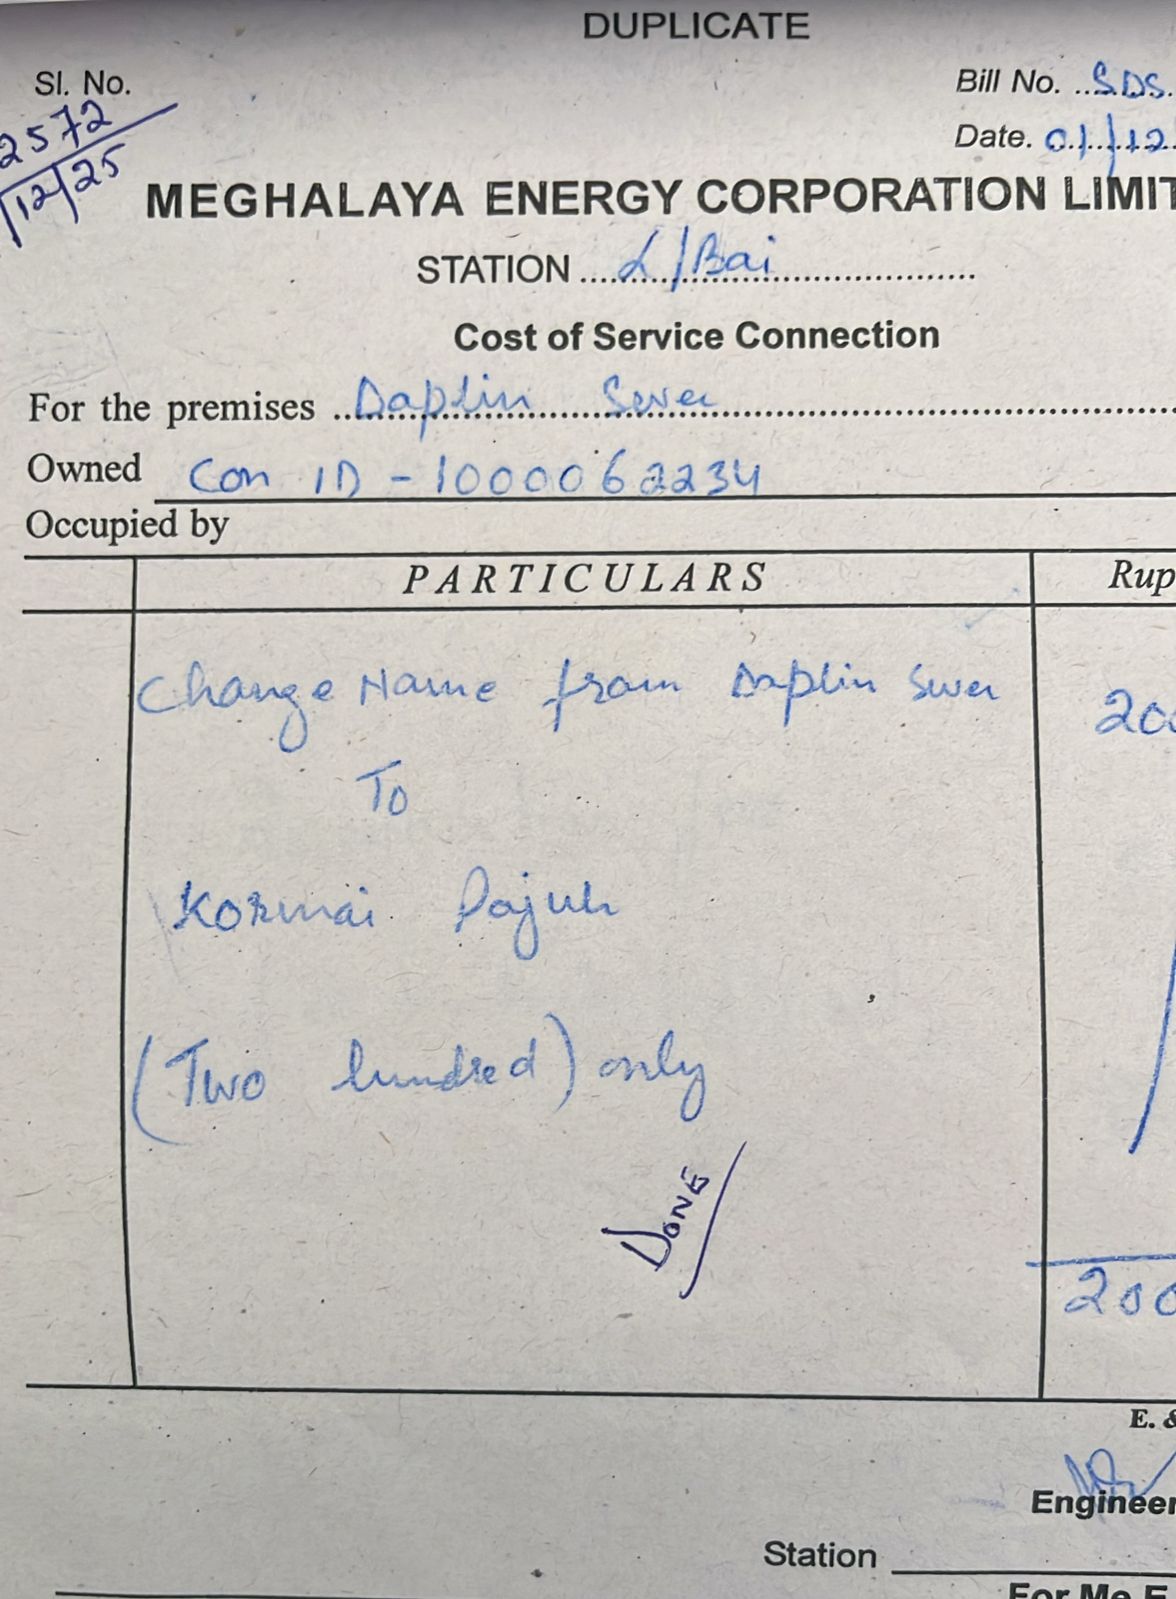 DUPLICATE
Sl. No.
2572
/12/25
Bill No. ..SDS.
Date. 01/12
MEGHALAYA ENERGY CORPORATION LIMIT
STATION ....L/Bai....................
Cost of Service Connection
For the premises ..Daplin Swer
Owned Con ID - 1000062234
Occupied by
PARTICULARS Rup
Change Name from Daplin Swer 200
To
Kormai Dajuh
(Two hundred) only
DONE
200
E. &
Engineer
Station
For Me E